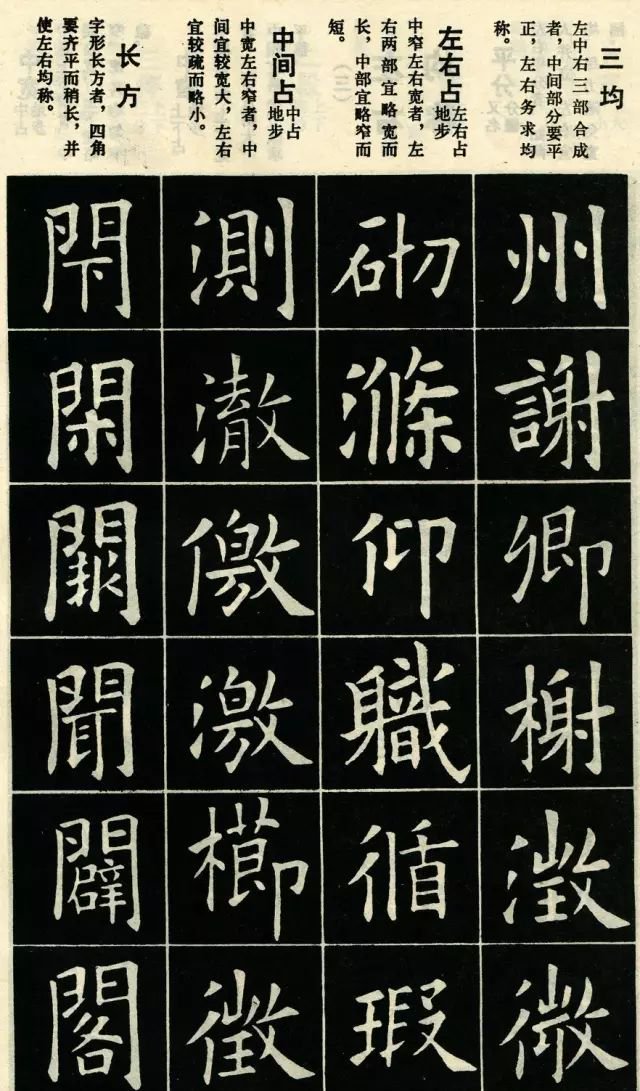 三均
左中右三部合成
者，中间部分要平
正，左右务求均
称。
左右占
左右占
地步
中窄左右宽者，左
右两部宜略宽而
长，中部宜略窄而
短。
中间占
中占
地步
中宽左右窄者，中
间宜较宽大，左右
宜较疏而略小。
长方
字形长方者，四角
要齐平而稍长，并
使左右均称。
州
謝
卿
榭
澂
微
砌
滌
仰
軄
循
瑕
測
澈
儌
激
櫛
徵
閇
閑
聞
闢
閣